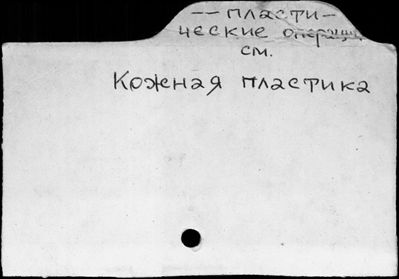 -- пласти-
ческие операции
см.
Кожная пластика